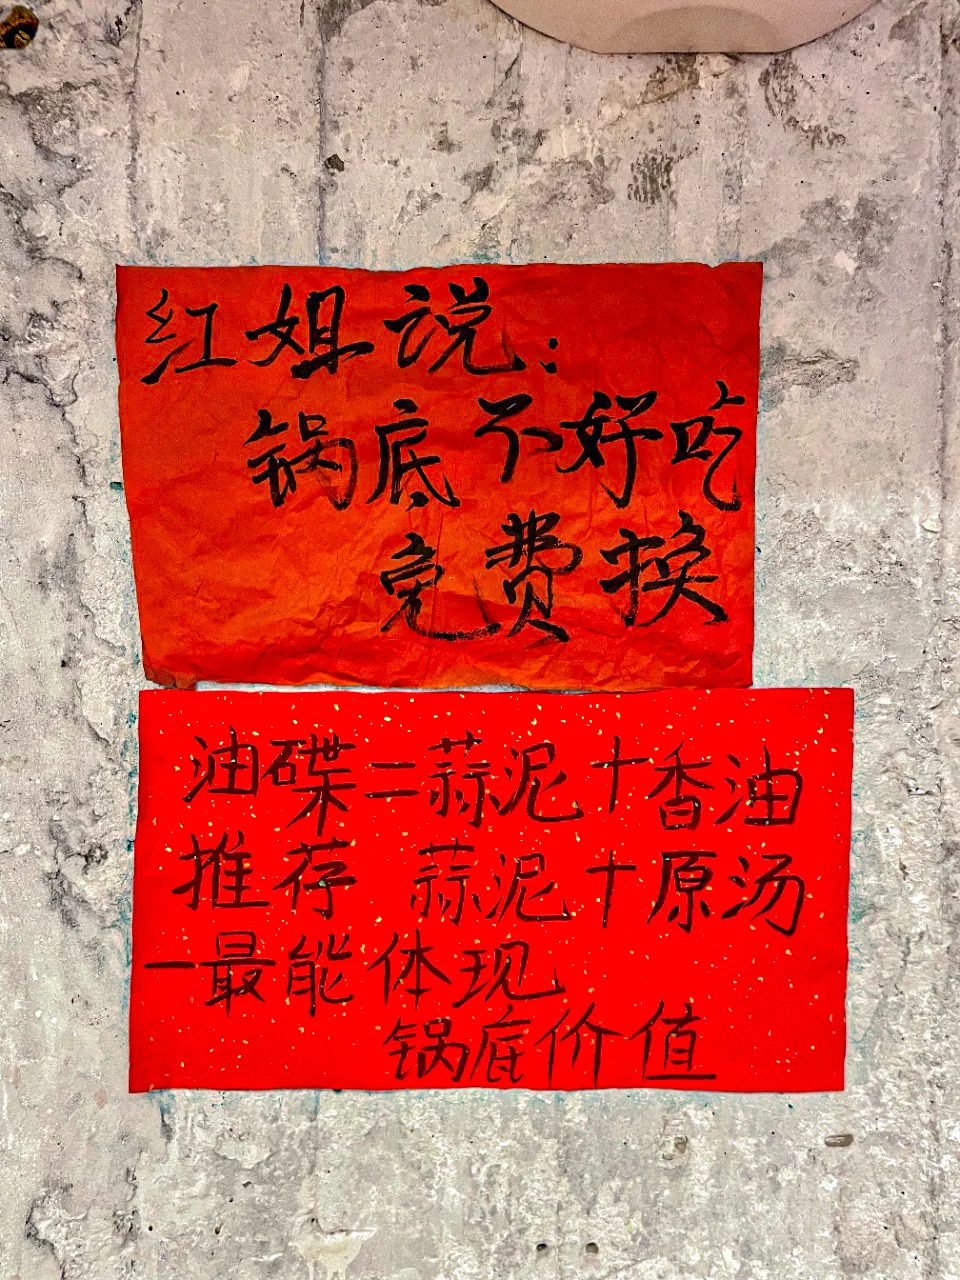 红姐说：
锅底不好吃
免费换
油碟=蒜泥+香油
推荐 蒜泥+原汤
一最能体现
锅底价值